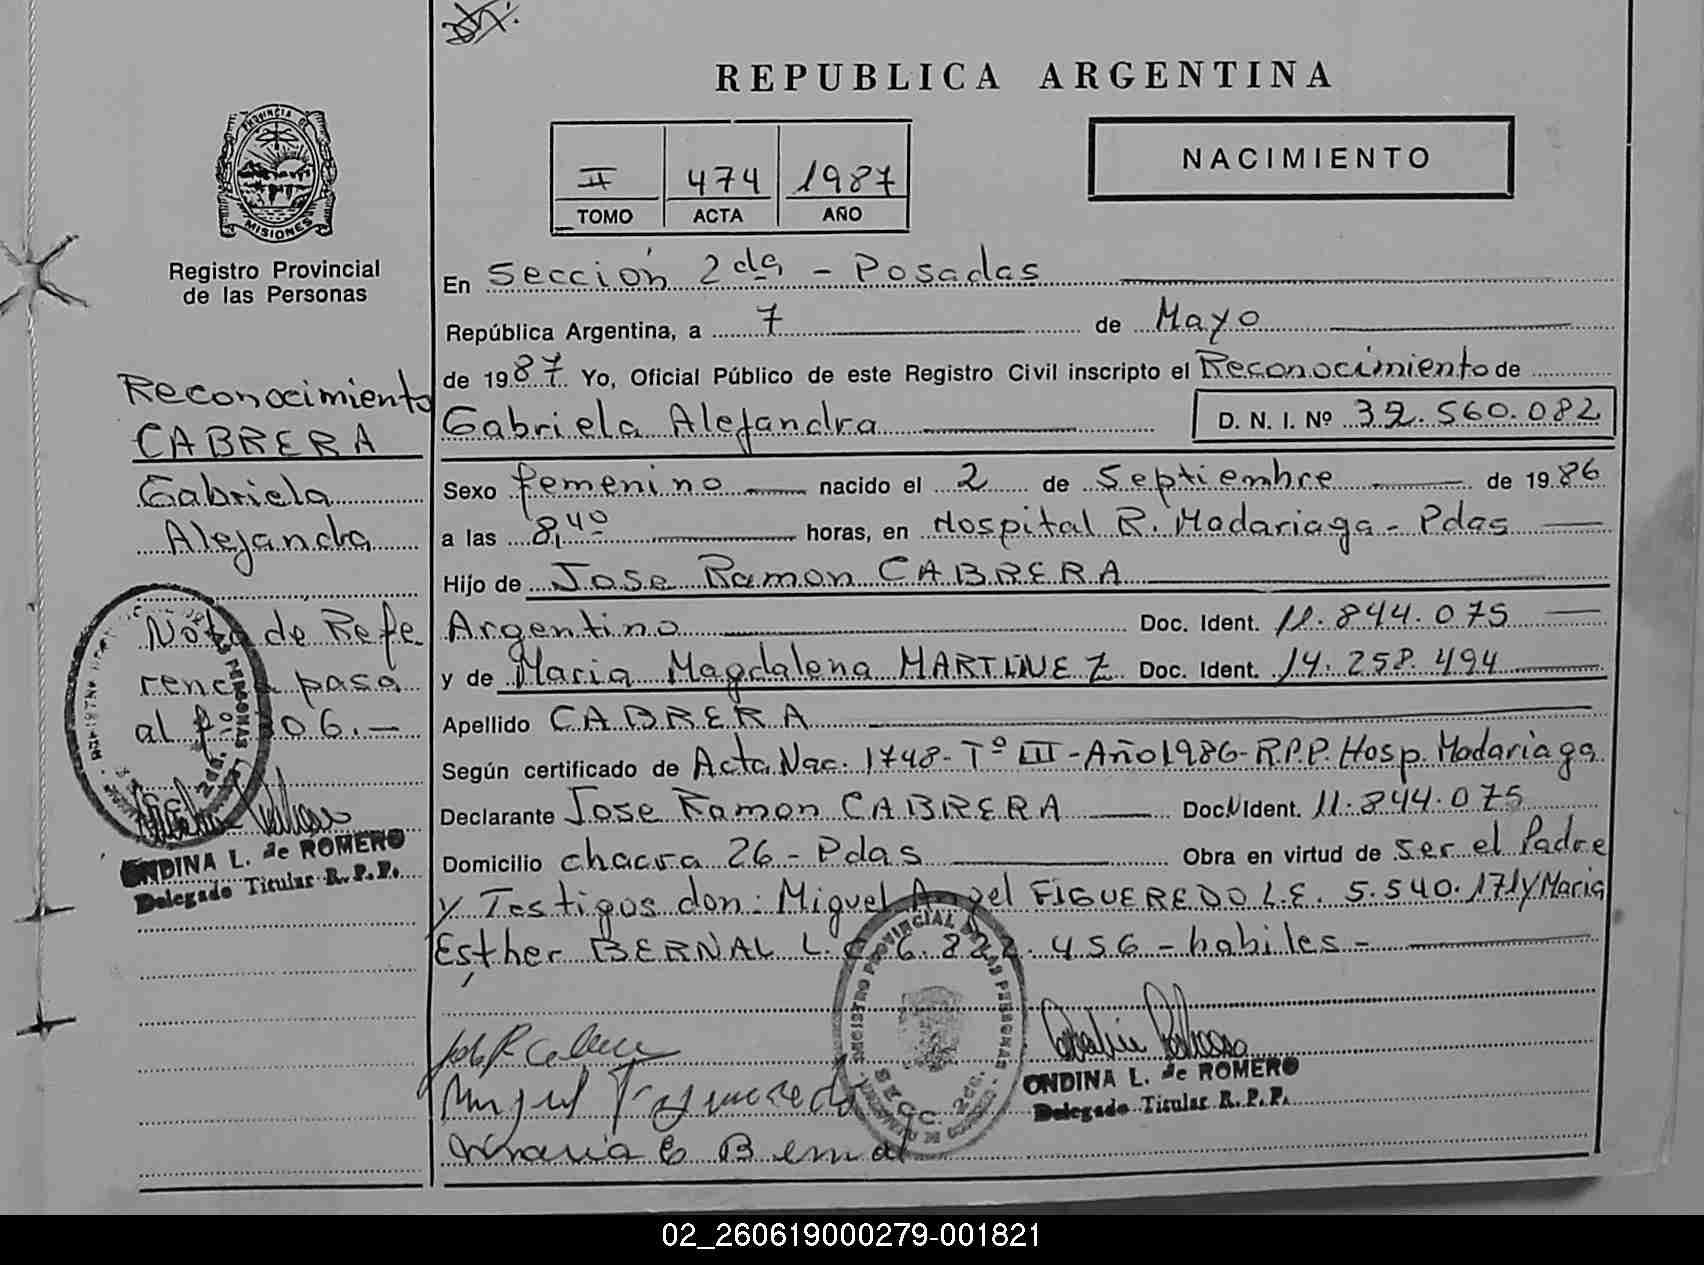 REPUBLICA ARGENTINA
NACIMIENTO
II 474 1987
TOMO ACTA AÑO
PROVINCIA DE
MISIONES
Registro Provincial
de las Personas
Reconocimiento
CABRERA
Gabriela
Alejandra
Nota de Refe
rencia pasa
al f. 106.-
ONDINA L. de ROMERO
Delegado Titular R. P. P.
En Sección 2da - Posadas
República Argentina, a 7 de Mayo
de 1987. Yo, Oficial Público de este Registro Civil inscripto el Reconocimiento de
Gabriela Alejandra D. N. I. Nº 32.560.082
Sexo femenino nacido el 2 de Septiembre de 1986
a las 8,40 horas, en Hospital R. Madariaga - Pdas
Hijo de Jose Ramon CABRERA
Argentino Doc. Ident. 11.844.075
y de Maria Magdalena MARTINEZ Doc. Ident. 14.258.494
Apellido CABRERA
Según certificado de Acta Nac. 1748 - Tº III - Año 1986 - R.P.P. Hosp. Madariaga
Declarante Jose Ramon CABRERA Doc. Ident. 11.844.075
Domicilio chacra 26 - Pdas Obra en virtud de ser el Padre
y Testigos don: Miguel Angel FIGUEREDO L.E. 5.540.171 y Maria
Esther BERNAL L.C 6.822.456 - habiles -
REGISTRO PROVINCIAL DE LAS PERSONAS
SECC. 2da.
Jose R Cabrera
Miguel Figueredo
Maria E Bernal
ONDINA L. de ROMERO
Delegado Titular R. P. P.
02_260619000279-001821